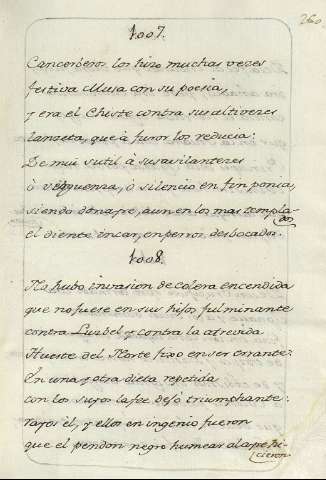 260
1007.
Cancerberos los hizo muchas vezes
festiva Musa con su poesia,
y era el Chiste contra sus altivezes
lanzeta, que à furor los reducia:
De mui sutil à sus avilantezes
ò verguenza, ò silencio en fin ponia,
siendo donayre, aun en los mas templados
el diente incar, en perros desbocados.
1008.
No hubo invasion de colera encendida
que no fuese en sus hijos fulminante
contra Luzbel y contra la atrevida
Hueste del Norte fixo en ser errante:
En una y otra dieta repetida
con los suyos la fee dejó triumphante:
rayos él, y ellos en ingenio fueron
que el pendon negro humear al ape hicieron